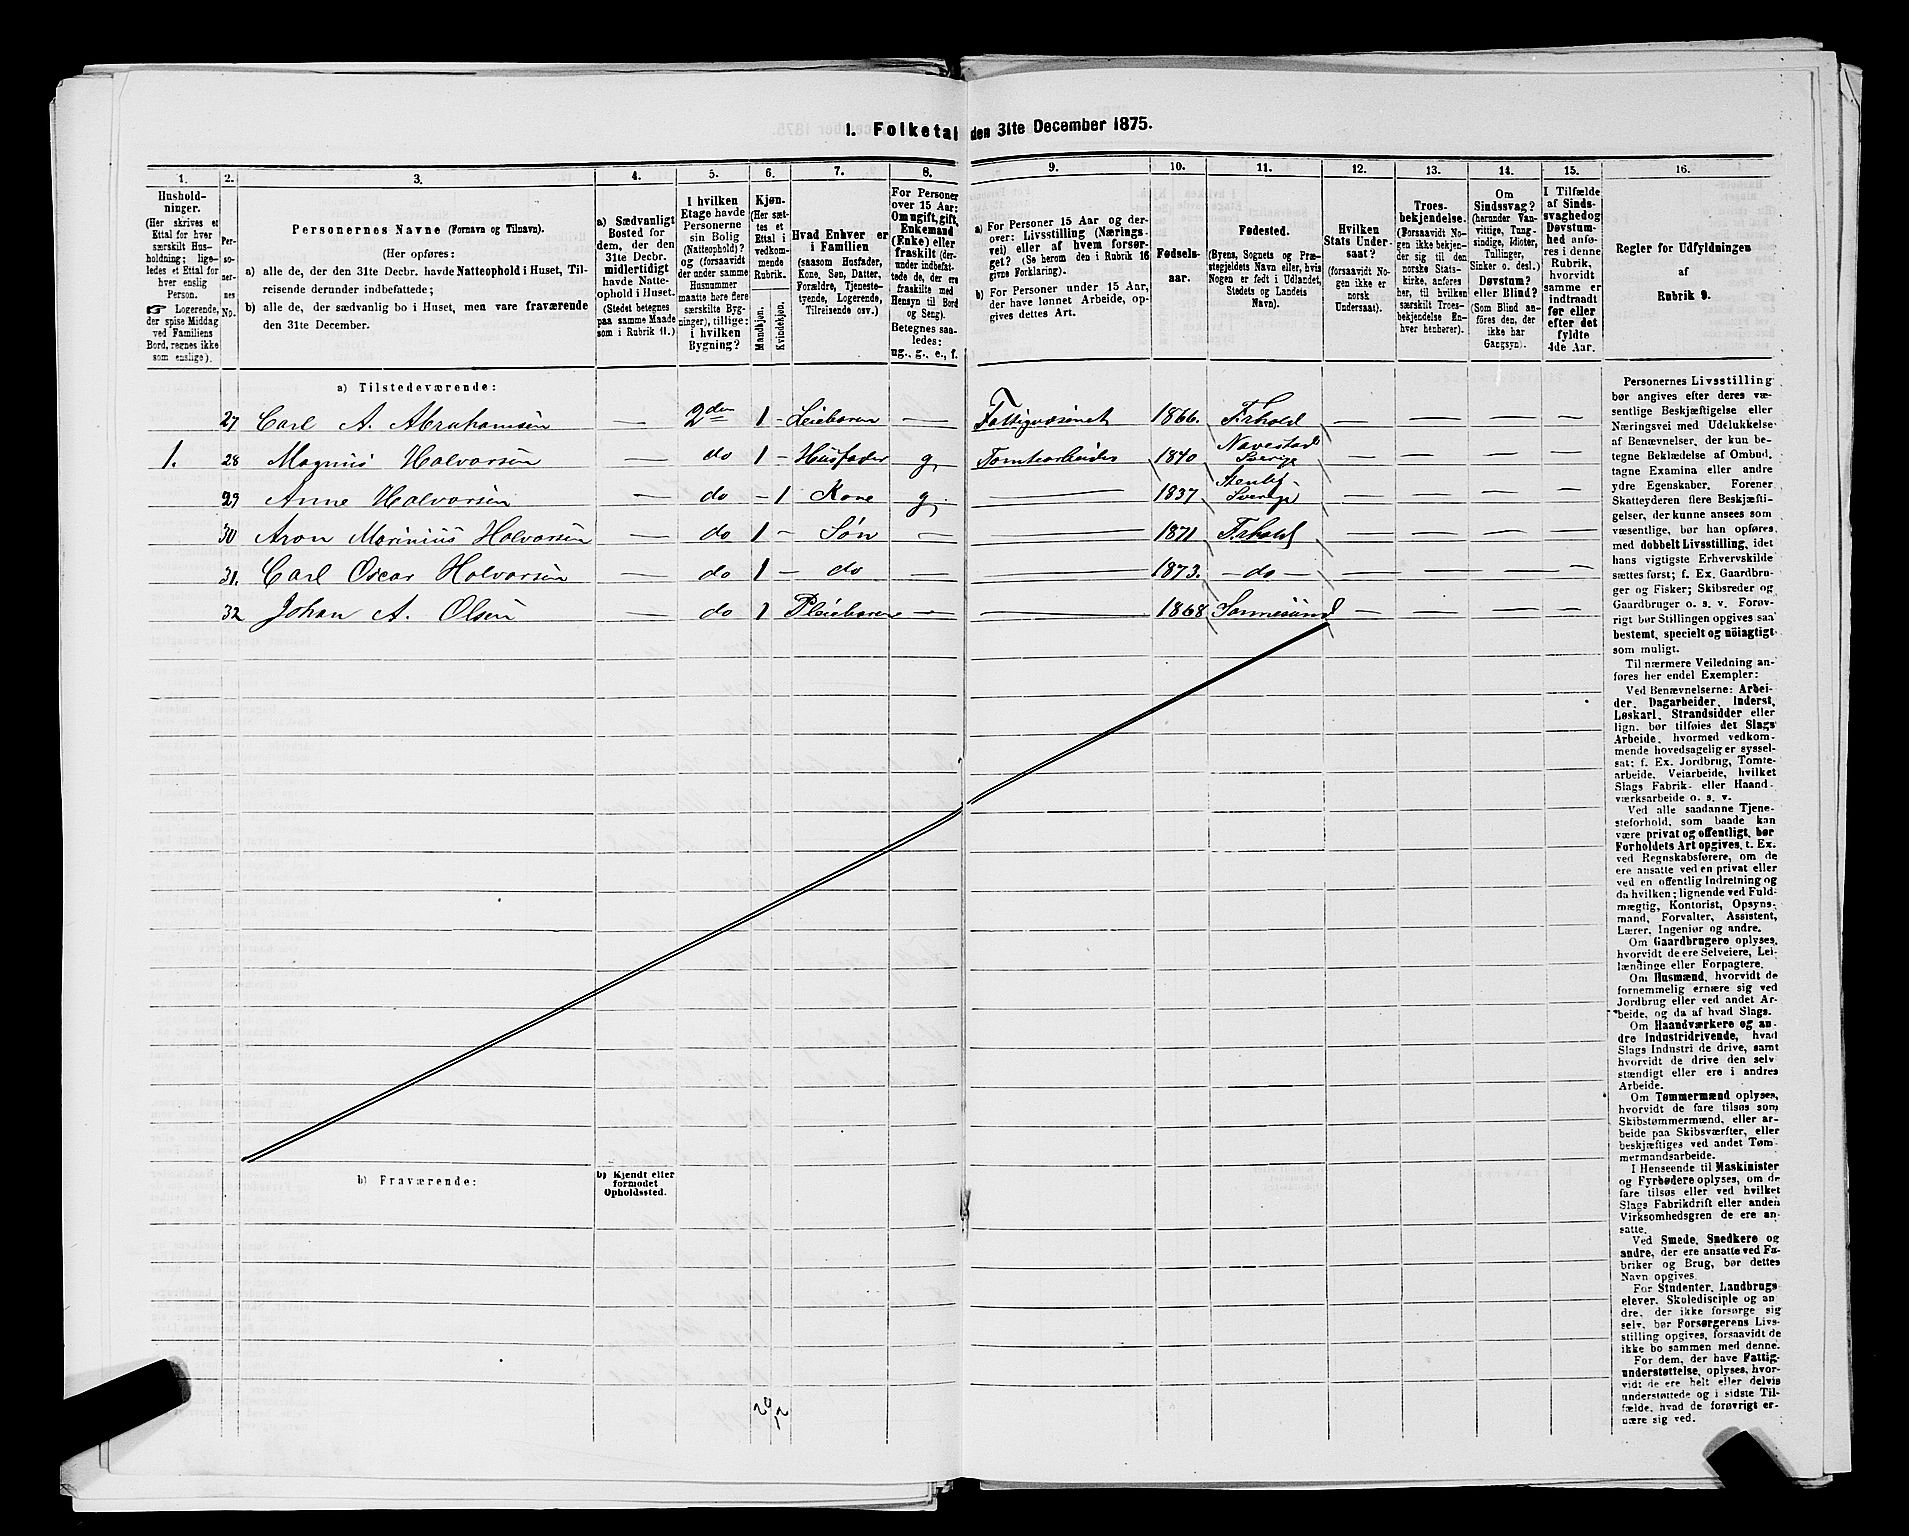 1. Folketal den 31te December 1875.
1.
Hushold-
ninger.
(Her skrives et
Ettal for hver
særskilt Hus-
holdning; lige-
ledes et Ettal for
hver enslig
Person.
☞ Logerende,
der spise Middag
ved Familiens
Bord, regnes ikke
som enslige).
2.
Per-
so-
ner-
nes
No.
3.
Personernes Navne (Fornavn og Tilnavn).
(Her opføres:
a) alle de, der den 31te Decbr. havde Natteophold i Huset, Til-
reisende derunder indbefattede;
b) alle de, der sædvanlig bo i Huset, men vare fraværende
den 31te December.
4.
a) Sædvanligt
Bosted for
dem, der den
31te Decbr.
midlertidigt
havde Natte-
ophold i Huset.
(Stedet betegnes
paa samme Maade
som i Rubrik 11.)
5.
I hvilken
Etage havde
Personerne
sin Bolig
(Natteophold)?
og (forsaavidt
der under samme
Husnummer
maatte høre flere
særskilte Byg-
ninger), tillige:
i hvilken
Bygning?
6.
Kjøn.
(Her sæt-
tes et
Ettal i
vedkom-
mende
Rubrik.
Mandkjøn.
Kvindekjøn.
7.
Hvad Enhver er
i Familien
(saasom Husfader,
Kone, Søn, Datter,
Forældre, Tjeneste-
tyende, Logerende,
Tilreisende osv.)
8.
For Personer
over 15 Aar:
Om ugift, gift,
Enkemand
(Enke) eller
fraskilt (der-
under indbefat-
tede de, der ere
fraskilte med
Hensyn til Bord
og Seng).
Betegnes saa-
ledes:
ug., g., e., f.
9.
a) For Personer 15 Aar og der-
over: Livsstilling (Nærings-
vei) eller af hvem forsør-
get? (Se herom den i Rubrik 16
givne Forklaring).
b) For Personer under 15 Aar,
der have lønnet Arbeide, op-
gives dettes Art.
10.
Fødsels-
aar.
11.
Fødested.
(Byens, Sognets og Præ-
stegjeldets Navn eller, hvis
Nogen er født i Udlandet,
Stedets og Landets
Navn).
12.
Hvilken
Stats Under-
saat?
(forsaavidt No-
gen ikke er
norsk
Undersaat).
13.
Troes-
bekjendelse.
(Forsaavidt No-
gen ikke bekjen-
der sig til den
norske Stats-
kirke, anføres
her, til hvilken
særskilt Troes-
bekjendelse En-
hver henhører).
14.
Om
Sindssvag?
(herunder Van-
vittige, Tung-
sindige, Idioter,
Tullinger,
Sinker o. desl.)
Døvstum?
eller Blind?
(Som Blind an-
føres den, der
ikke har
Gangsyn).
15.
I Tilfælde
af Sinds-
svaghed og
Døvstum-
hed anfø-
res i denne
Rubrik,
hvorvidt
samme er
indtraadt
før eller
efter det
fyldte
4de Aar.
16.
Regler for Udfyldningen
af
Rubrik 9.
a) Tilstedeværende:
27 Carl A. Abrahamsen — 2den 1 - Pleiebaren — Fattigvæsenet 1866. Tirhold — — — —
1. 28 Magnus Halvorsen do 1 - Husfader g. Tomtearbeider 1840 Navestad Sverige — — — —
29 Anne Halvorsen — do - 1 Kone g. — 1837 Sverige — — — —
30 Aron Marinius Halvorsen — do 1 - Søn — — 1871 Tirhold — — — —
31. Carl Oscar Halvorsen — do 1 - do — — 1873. - do - — — — —
32 Johan A. Olsen — do 1 Pleiebaren — — 1868 Sannesund — — — —
b) Fraværende:
b) Kjendt eller
formodet
Opholdssted.
20/12
Personernes Livsstilling
bør angives efter deres væ-
sentlige Beskjæftigelse eller
Næringsvei med Udelukkelse
af Benævnelser, der kun be-
tegne Beklædelse af Ombud,
tagne Examina eller andre
ydre Egenskaber. Forener
Skatteyderen flere Beskjæfti-
gelser, der kunne ansees som
væsentlige, bør han opføres
med dobbelt Livsstilling, idet
hans vigtigste Erhvervskilde
sættes først; f. Ex. Gaardbru-
ger og Fisker; Skibsreder og
Gaardbruger o. s. v. Forøv-
rigt bør Stillingen opgives saa
bestemt, specielt og nöiagtigt
som muligt.
Til nærmere Veiledning an-
føres her endel Exempler:
Ved Benævnelserne: Arbei-
der, Dagarbeider, Inderst,
Løskarl, Strandsidder eller
lign. bør tilføies det Slags
Arbeide, hvormed vedkom-
mende hovedsagelig er syssel-
sat; f. Ex. Jordbrug, Tomte-
arbeide, Veiarbeide, hvilket
Slags Fabrik- eller Haand-
værksarbeide o. s. v.
Ved alle saadanne Tjene-
steforhold, som baade kan
være privat og offentligt, bør
Forholdets Art opgives, t. Ex.
ved Regnskabsførere, om de
ere ansatte ved en privat eller
ved en offentlig Indretning og
da hvilken; lignende ved Fuld-
mægtig, Kontorist, Opsyns-
mand, Forvalter, Assistent,
Lærer, Ingeniør og andre.
Om Gaardbrugere oplyses,
hvorvidt de ere Selveiere, Lei-
lændinge eller Forpagtere.
Om Husmænd, hvorvidt de
fornemmelig ernære sig ved
Jordbrug eller ved andet Ar-
beide, og da af hvad Slags.
Om Haandværkere og an-
dre Industridrivende, hvad
Slags Industri de drive, samt
hvorvidt de drive den selv-
stændigt eller ere i andres
Arbeide.
Om Tømmermænd oplyses,
hvorvidt de fare tilsøs som
Skibstømmermænd, eller ar-
beide paa Skibsværfter, eller
beskjæftiges ved andet Tøm-
mermandsarbeide.
I Henseende til Maskinister
og Fyrbødere oplyses, om de
fare tilsøs eller ved hvilket
Slags Fabrikdrift eller anden
Virksomhedsgren de ere an-
satte.
Ved Smede, Snedkere og
andre, der ere ansatte ved Fa-
briker og Brug, bør dettes
Navn opgives.
For Studenter, Landbrugs-
elever, Skoledisciple og an-
dre, der ikke forsørge sig
selv, bør Forsørgerens Livs-
stilling opgives, forsaavidt de
ikke bo sammen med denne.
For dem, der have Fattig-
understøttelse, oplyses, hvor-
vidt de ere helt eller delvis
understøttede og i sidste Til-
fælde, hvad de forøvrigt er-
nære sig ved.